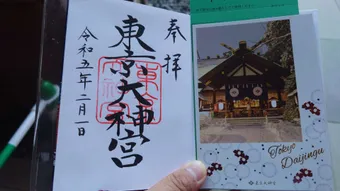 奉拝
東京大神宮
令和五年二月一日
Tokyo
Daijingu